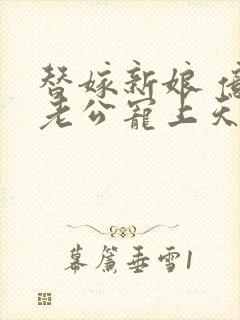 替嫁新娘
老公寵上天
幕簾垂雪1